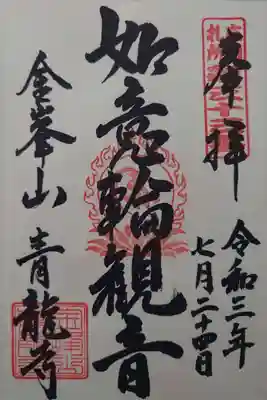 奉拝
令和三年
七月二十四日
如意輪観音
金峯山 青龍寺